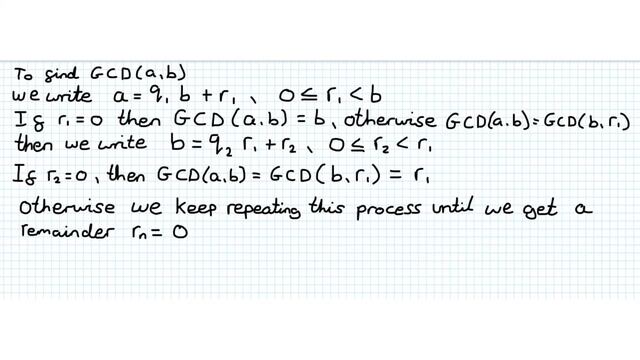 To find GCD(a,b)
we write a = q₁ b + r₁, 0 ≤ r₁ < b
If r₁ = 0 then GCD(a,b) = b, otherwise GCD(a,b) = GCD(b,r₁)
then we write b = q₂ r₁ + r₂, 0 ≤ r₂ < r₁
If r₂ = 0, then GCD(a,b) = GCD(b,r₁) = r₁
otherwise we keep repeating this process until we get a
remainder rₙ = 0